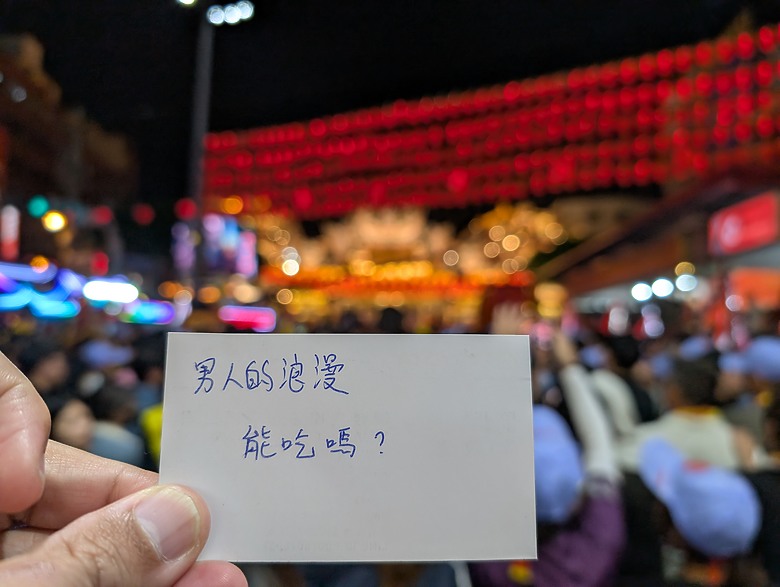 男人的浪漫
能吃嗎？